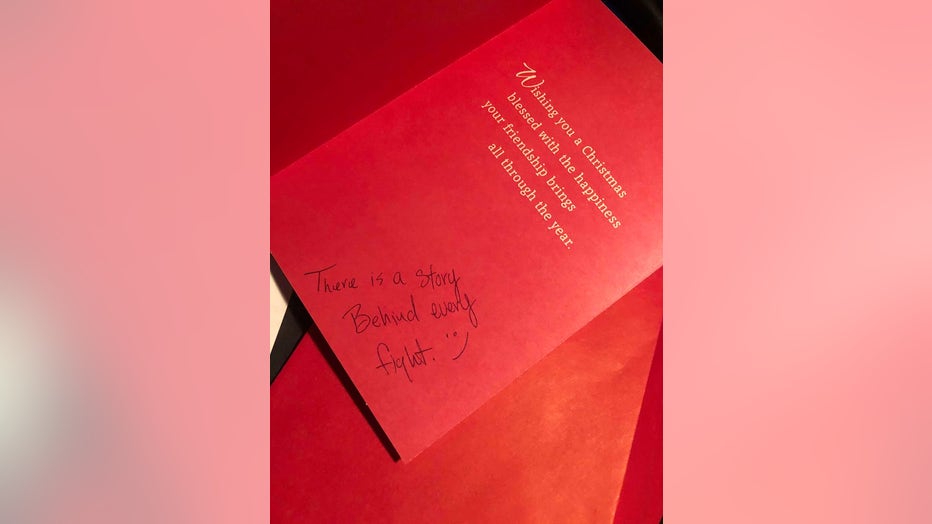 Wishing you a Christmas
blessed with the happiness
your friendship brings
all through the year.
There is a story
Behind every
fight. :)